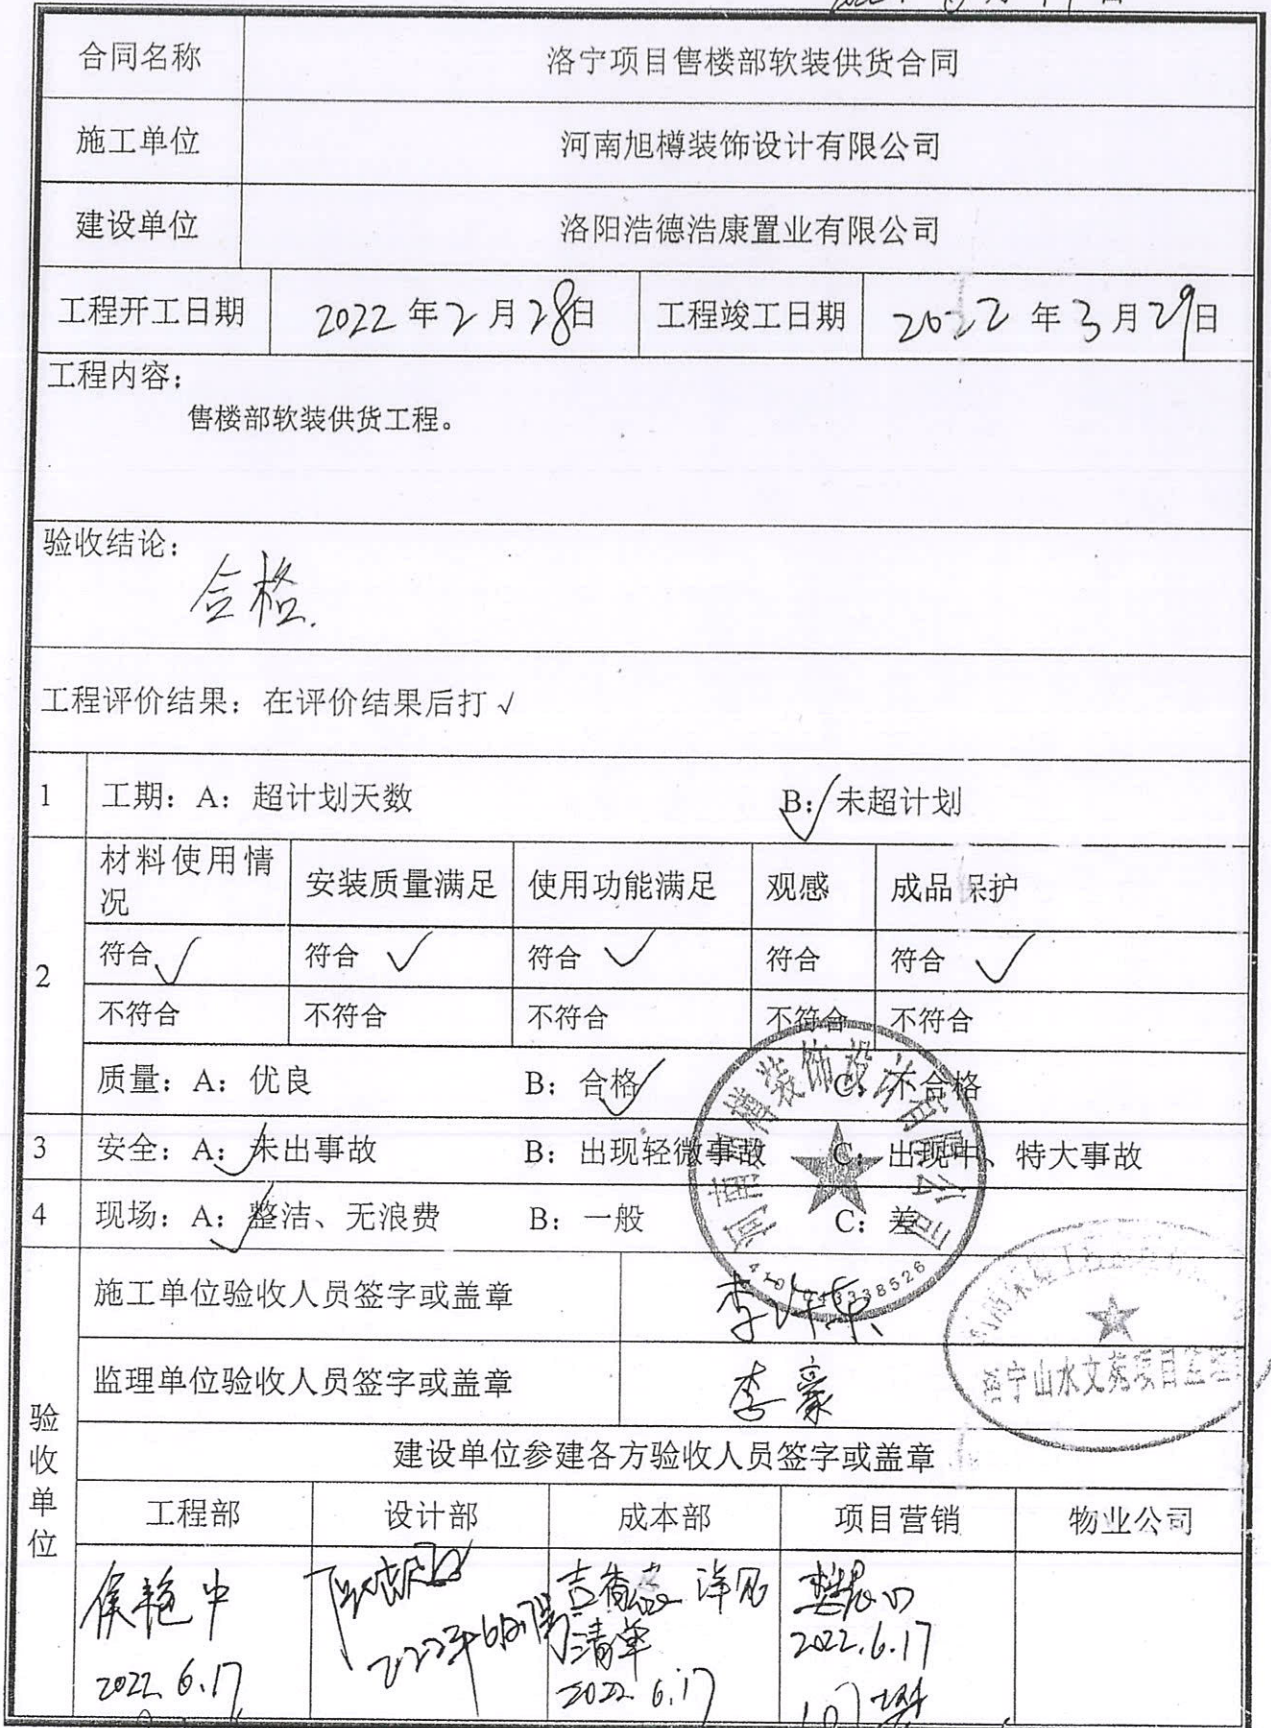 合同名称 洛宁项目售楼部软装供货合同
施工单位 河南旭樽装饰设计有限公司
建设单位 洛阳浩德浩康置业有限公司
工程开工日期 2022年2月28日 工程竣工日期 2022年3月29日
工程内容：
售楼部软装供货工程。
验收结论：
合格.
工程评价结果：在评价结果后打√
1 工期：A：超计划天数 B：√未超计划
材料使用情况 安装质量满足 使用功能满足 观感 成品保护
2 符合√ 符合√ 符合√ 符合 符合√
不符合 不符合 不符合 不符合 不符合
质量：A：优良 B：合格√ C：不合格
3 安全：A：√未出事故 B：出现轻微事故 C：出现中、特大事故
4 现场：A：√整洁、无浪费 B：一般 C：差
河南旭樽装饰设计有限公司
验收单位
施工单位验收人员签字或盖章 李
监理单位验收人员签字或盖章 李豪
洛宁山水文苑项目监理
建设单位参建各方验收人员签字或盖章
工程部 设计部 成本部 项目营销 物业公司
侯艳中 详见
清单
2022.6.17
2022.6.17 2022.6.17